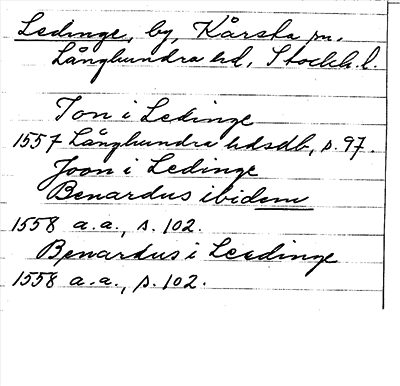 Ledinge, by, Kårsta sn.
Långhundra hd, Stockh. l.
Ion i Ledinge
1557 Långhundra hdsdb, s. 97.
Joon i Ledinge
Benardus ibidem
1558 a.a., s. 102.
Benardus i Leedinge
1558 a.a., s. 102.